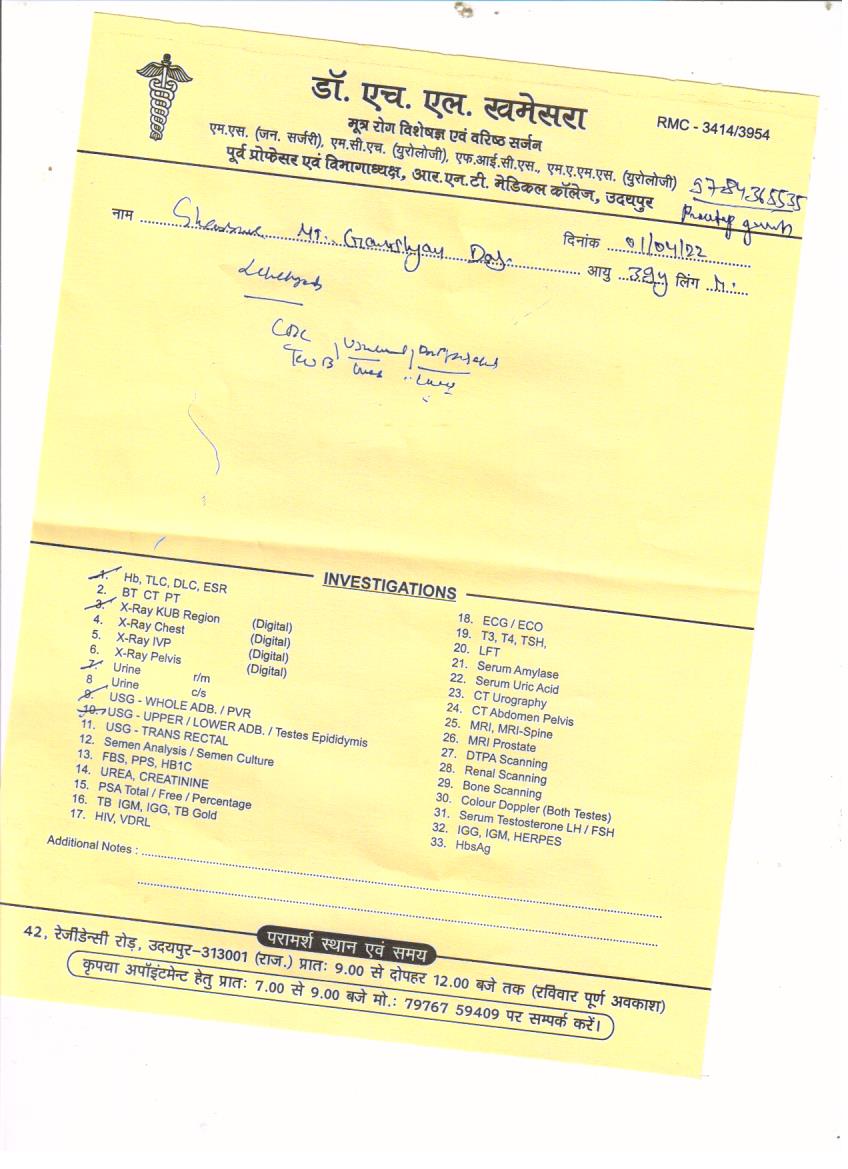 डॉ. एच. एल. खमेसरा
RMC - 3414/3954
मूत्र रोग विशेषज्ञ एवं वरिष्ठ सर्जन
एम.एस. (जन. सर्जरी), एम.सी.एच. (युरोलोजी), एफ.आई.सी.एस., एम.ए.एम.एस. (युरोलोजी)
पूर्व प्रोफेसर एवं विभागाध्यक्ष, आर.एन.टी. मेडिकल कॉलेज, उदयपुर
9784365535
नाम
दिनांक 01/04/22
आयु 39y लिंग M.
INVESTIGATIONS
1. Hb, TLC, DLC, ESR
2. BT CT PT
3. X-Ray KUB Region (Digital)
4. X-Ray Chest (Digital)
5. X-Ray IVP (Digital)
6. X-Ray Pelvis (Digital)
7. Urine r/m
8 Urine c/s
9. USG - WHOLE ADB. / PVR
10. USG - UPPER / LOWER ADB. / Testes Epididymis
11. USG - TRANS RECTAL
12. Semen Analysis / Semen Culture
13. FBS, PPS, HB1C
14. UREA, CREATININE
15. PSA Total / Free / Percentage
16. TB IGM, IGG, TB Gold
17. HIV, VDRL
18. ECG / ECO
19. T3, T4, TSH,
20. LFT
21. Serum Amylase
22. Serum Uric Acid
23. CT Urography
24. CT Abdomen Pelvis
25. MRI, MRI-Spine
26. MRI Prostate
27. DTPA Scanning
28. Renal Scanning
29. Bone Scanning
30. Colour Doppler (Both Testes)
31. Serum Testosterone LH / FSH
32. IGG, IGM, HERPES
33. HbsAg
Additional Notes :
परामर्श स्थान एवं समय
42, रेजीडेन्सी रोड़, उदयपुर-313001 (राज.) प्रातः 9.00 से दोपहर 12.00 बजे तक (रविवार पूर्ण अवकाश)
कृपया अपॉइंटमेन्ट हेतु प्रातः 7.00 से 9.00 बजे मो.: 79767 59409 पर सम्पर्क करें।